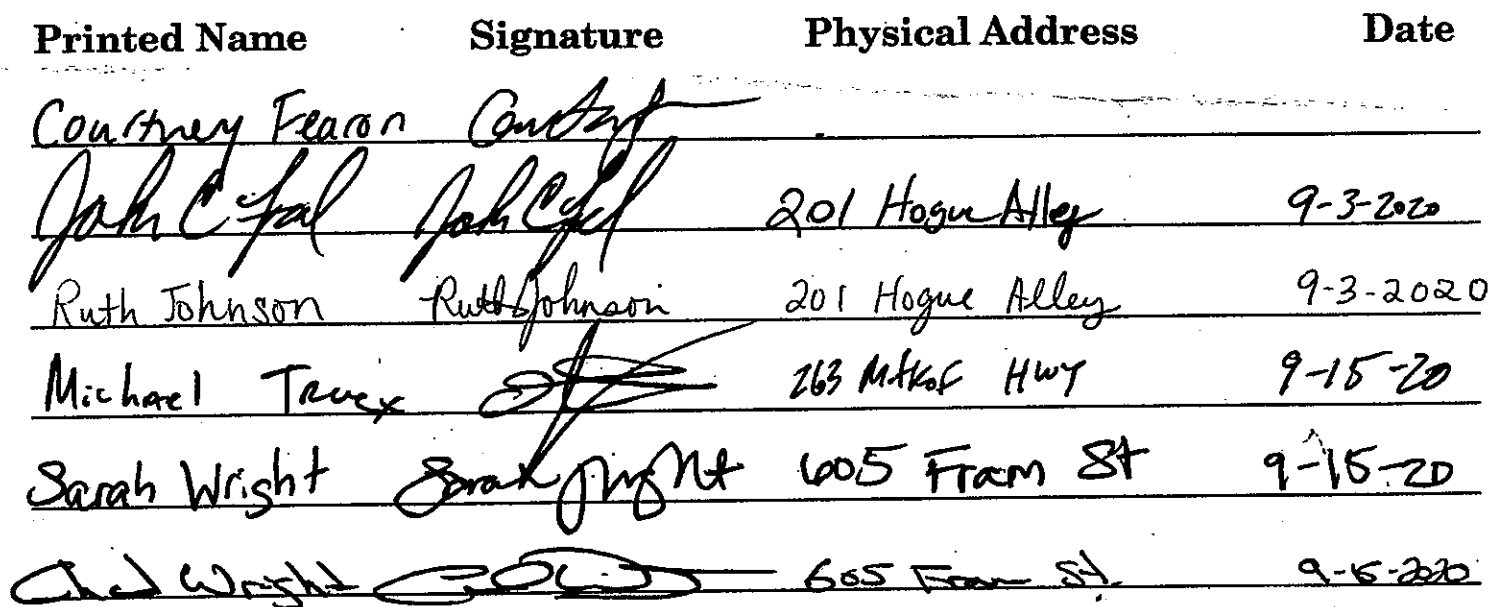 Printed Name Signature Physical Address Date
Courtney Fearon
John C 201 Hogue Alley 9-3-2020
Ruth Johnson Ruth Johnson 201 Hogue Alley 9-3-2020
Michael Truex 263 Mitkof HWY 9-15-20
Sarah Wright Sarah Wright 605 Fram St 9-15-20
Chad Wright 605 Fram St. 9-15-2020